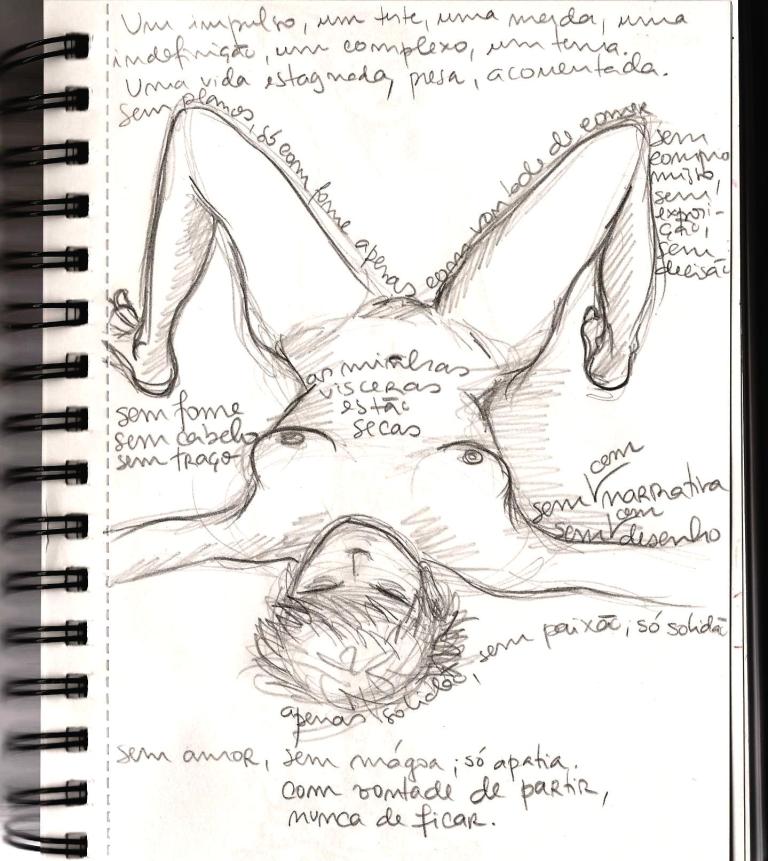 Um impulso, um teste, uma merda, uma
indefinição, um complexo, um tema.
Uma vida estagnada, presa, acorrentada.
sem planos, só com fome apenas com vontade de comer
sem
compro
misso,
sem
exposi-
ção,
sem
decisão
as minhas
vísceras
estão
secas
sem fome
sem cabelo
sem traço
com
sem narrativa
com
sem desenho
apenas solidão, sem paixão, só solidão
sem amor, sem mágoa, só apatia.
com vontade de partir,
nunca de ficar.